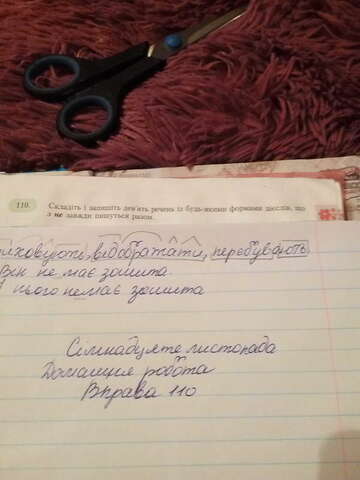 110. Складіть і запишіть дев'ять речень із будь-якими формами дієслів, що
з не завжди пишуться разом.
відображати, перебувають
Він не має зошита.
нього немає зошита
Сімнадцяте листопада
Домашня робота
Вправа 110